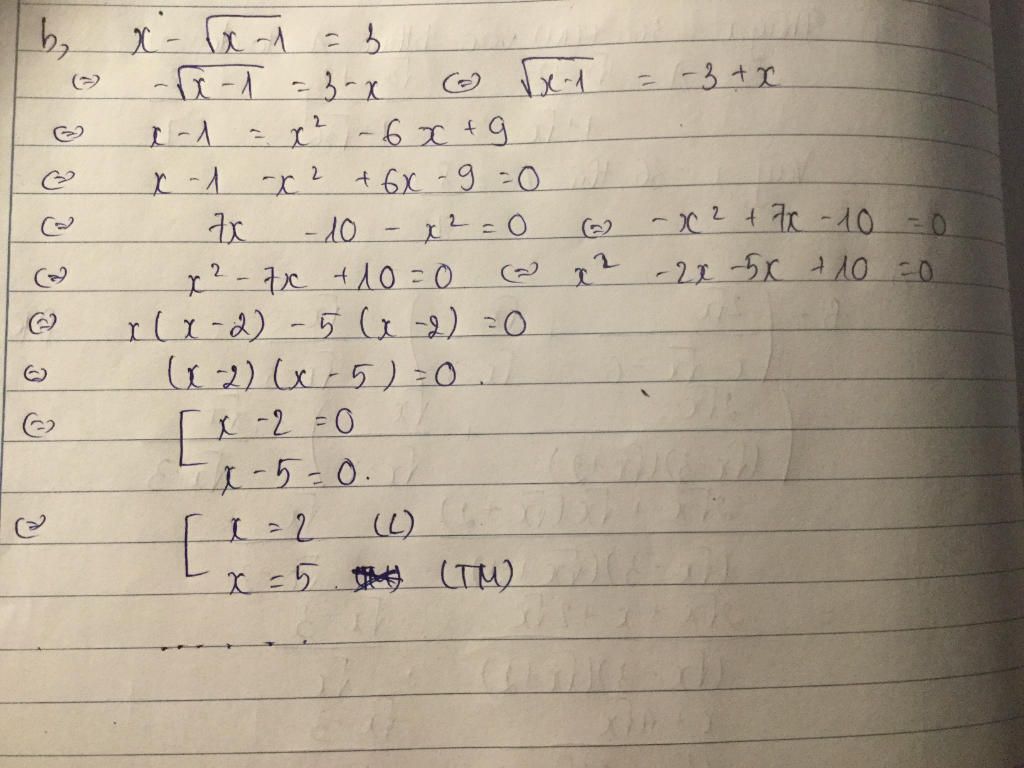 b, x - √(x-1) = 3
⇔ -√(x-1) = 3-x ⇔ √(x-1) = -3+x
⇔ x-1 = x² - 6x + 9
⇔ x-1 -x² + 6x - 9 = 0
⇔ 7x - 10 - x² = 0 ⇔ -x² + 7x - 10 = 0
⇔ x² - 7x + 10 = 0 ⇔ x² - 2x - 5x + 10 = 0
⇔ x(x-2) - 5(x-2) = 0
⇔ (x-2)(x-5) = 0.
⇔ [ x-2 = 0
x-5 = 0.
⇔ [ x = 2 (L)
x = 5. (TM)